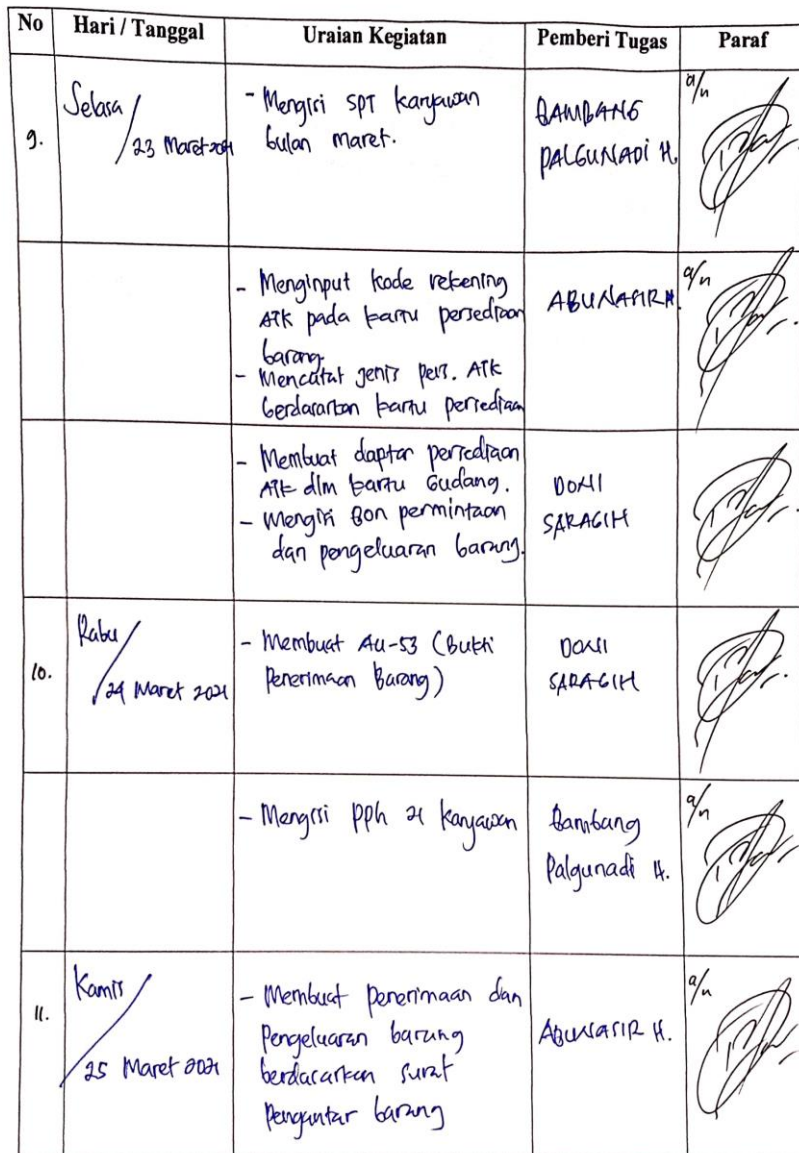 No Hari / Tanggal Uraian Kegiatan Pemberi Tugas Paraf
9.
Selasa /
23 Maret 2021
- Mengisi SPT karyawan
bulan maret.
BAMBANG
PALGUNADI H.
a/n
- Menginput kode rekening
ATK pada kartu persediaan
barang
- Mencatat jenis pers. ATK
berdasarkan kartu persediaan
ABUNASIR H.
a/n
- Membuat daptar persediaan
ATK dlm kartu Gudang.
- Mengisi Bon permintaan
dan pengeluaran barang.
DONI
SARAGIH
10.
Rabu /
24 Maret 2021
- Membuat AU-53 (Bukti
Penerimaan Barang)
DONI
SARAGIH
- Mengisi PPh 21 karyawan
Bambang
Palgunadi H.
a/n
11.
Kamis /
25 Maret 2021
- Membuat penerimaan dan
Pengeluaran barang
berdasarkan surat
Pengantar barang
ABUNASIR H.
a/n